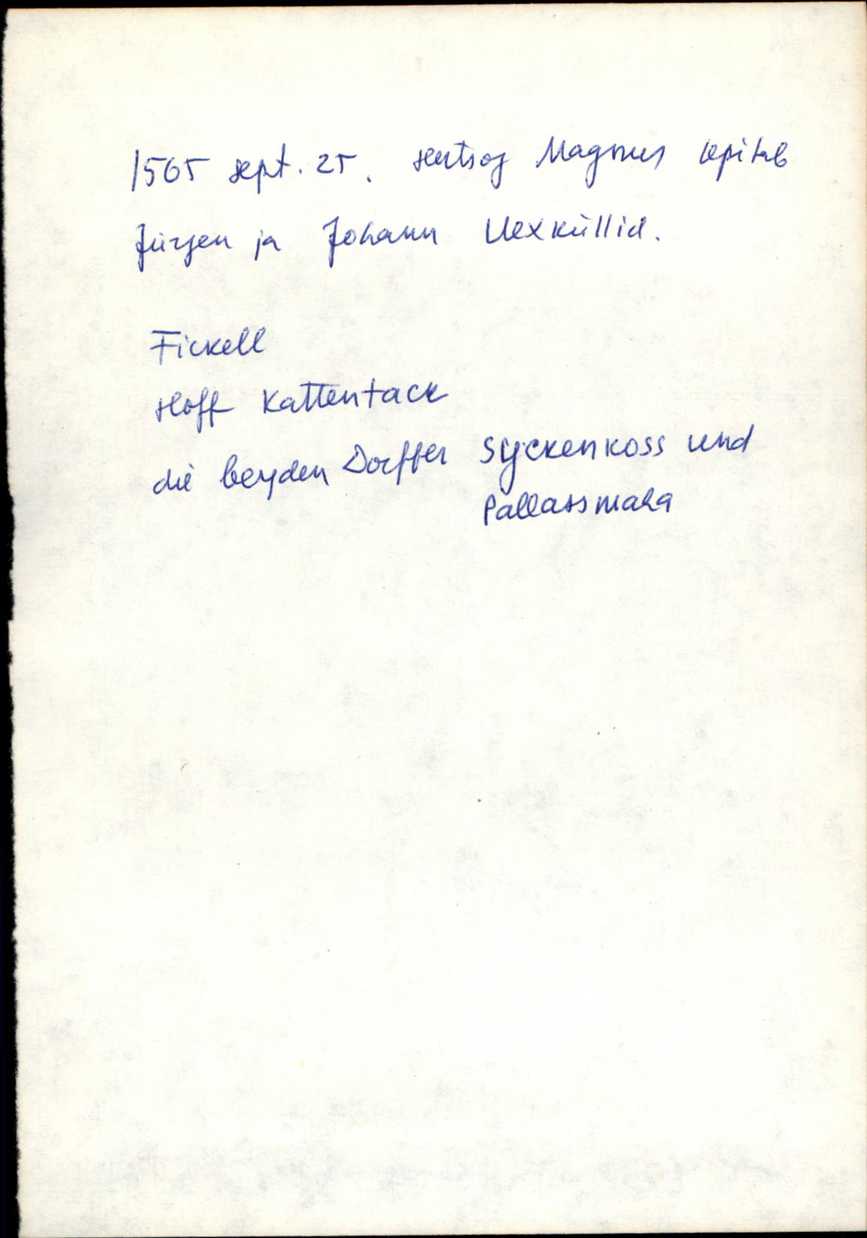 1565 sept. 25. Hertsog Magnus lepitab
Jürgen ja Johann Uexküllid.
Fickell
Hoff Kattentack
die beyden Dorffer Syckenkoss und
Pallassmaha